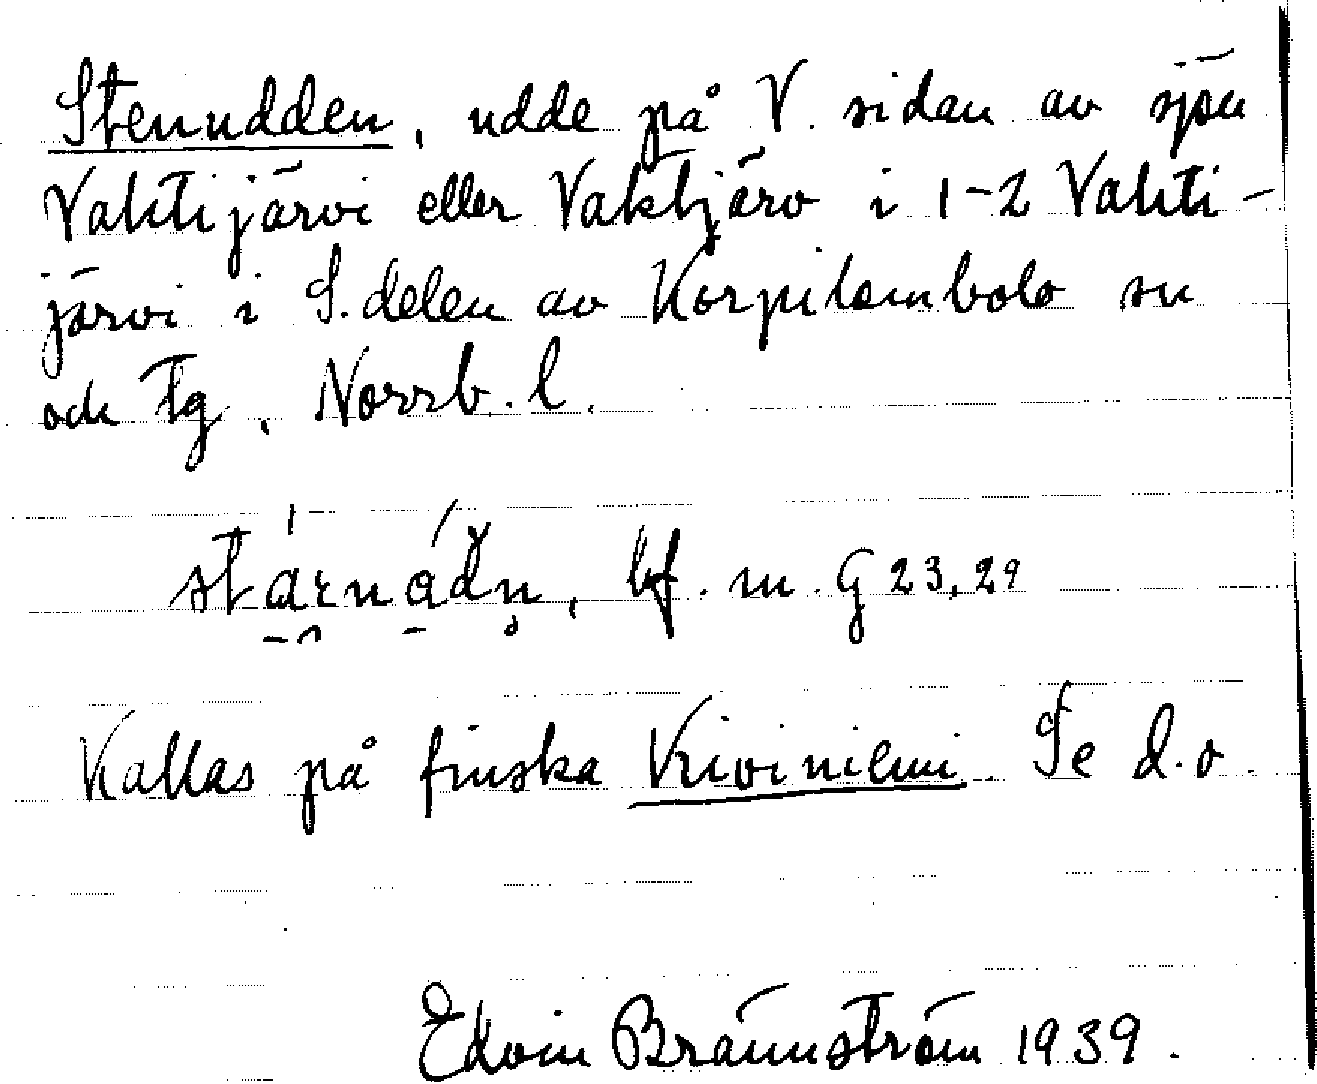 Stenudden, udde på V. sidan av sjön
Vahtijärvi eller Vaktjärv i 1-2 Vahti-
järvi i S. delen av Korpilombolo sn
och tg, Norrb. l.
bf. m. G 23, 29
Kallas på finska Kiviniemi Se d.o.
Edvin Brännström 1939.